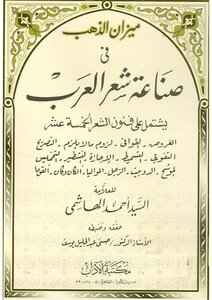 ميزان الذهب
في
صناعة شعر العرب
يشتمل على فنون الشعر الخمسة عشر
العروض - القوافي - لزوم ما لا يلزم - التصريع
التفويف - التسميط - الإجازة - التشطير - التخميس
الموشح - الدوبيت - الزجل - المواليا - الكان وكان - القوما
للعلامة
السيد أحمد الهاشمي
حققه وضبطه
الأستاذ الدكتور / حسني عبد الجليل يوسف
مكتبة الآداب